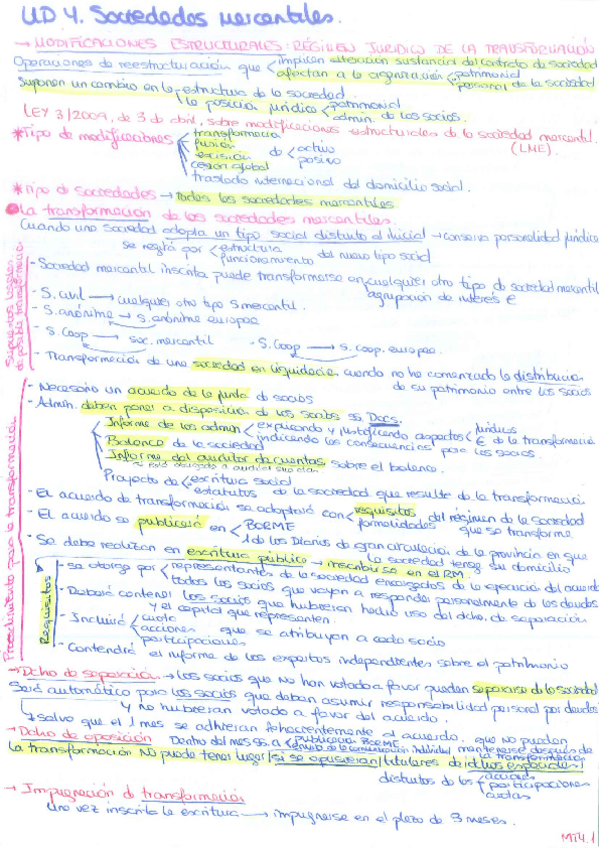 UD 4. Sociedades mercantiles.
→ MODIFICACIONES ESTRUCTURALES: RÉGIMEN JURIDICO DE LA TRANSFORMACIÓN
Operaciones de reestructuración que < implican alteración sustancial del contrato de sociedad
afectan a la organización < patrimonial
personal de la sociedad
Suponen un cambio en la < estructura de la sociedad
la posición jurídica < patrimonial
admin. de los socios.
LEY 3/2009, de 3 de abril, sobre modificaciones estructurales de la sociedad mercantil
(LME).
*Tipo de modificaciones < transformación
fusión
escisión
cesión global de < activo
pasivo
traslado internacional del domicilio social.
*Tipo de sociedades → todas las sociedades mercantiles
La transformación de las sociedades mercantiles.
Cuando una sociedad adopta un tipo social distinto al inicial → conserva personalidad jurídica
se regirá por < estructura
funcionamiento del nuevo tipo social
Supuestos legales de posible transformación
- Sociedad mercantil inscrita puede transformarse en < cualquier otro tipo de sociedad mercantil
agrupación de interés €
- S. civil → cualquier otro tipo S mercantil.
- S. anónima → s. anónima europea
- S. Coop → soc. mercantil - S. Coop → s. coop. europea.
- Transformación de una sociedad en liquidación cuando no ha comenzado la distribución
de su patrimonio entre los socios
Procedimiento para la transformación
- Necesario un acuerdo de la junta de socios
- Admin. deben poner a disposición de los socios ss. Docs.
Informe de los admin < explicando y justificando aspectos < jurídicos
€ de la transformación
indicando las consecuencias para los socios.
Balance de la sociedad
Informe del auditor de cuentas sobre el balance.
Proyecto de < escritura social
estatutos de la sociedad que resulte de la transformación
- El acuerdo de transformación se adoptará con < requisitos
formalidades del régimen de la sociedad
que se transforma
- El acuerdo se publicará en < BORME
1 de los Diarios de gran circulación de la provincia en que
la sociedad tenga su domicilio
- Se debe realizar en escritura pública → inscribirse en el RM.
Requisitos
- se otorga por < representantes de la sociedad encargados de la ejecución del acuerdo
todos los socios que vayan a responder personalmente de las deudas
- Deberá contener los socios que hubieran hecho uso del dcho. de separación
y el capital que representen.
- Incluirá < cuota
acciones
participaciones que se atribuyan a cada socio
- Contendrá el informe de los expertos independientes sobre el patrimonio
→ Dcho de separación → los socios que no han votado a favor pueden separarse de la sociedad
Será automático para los socios que deban asumir responsabilidad personal por deudas
y no hubieran votado a favor del acuerdo.
salvo que el 1 mes se adhieran fehacientemente al acuerdo.
→ Dcho de oposición Dentro del mes ss. a < publicación BORME
envío de la comunicación individual
que no puedan mantenerse después de la transformación
la transformación NO puede tener lugar si se opusieran titulares de dchos especiales
distintos de las < acciones
participaciones
cuotas
→ Impugnación de transformación
Una vez inscrita la escritura → impugnarse en el plazo de 3 meses.
MT4.1